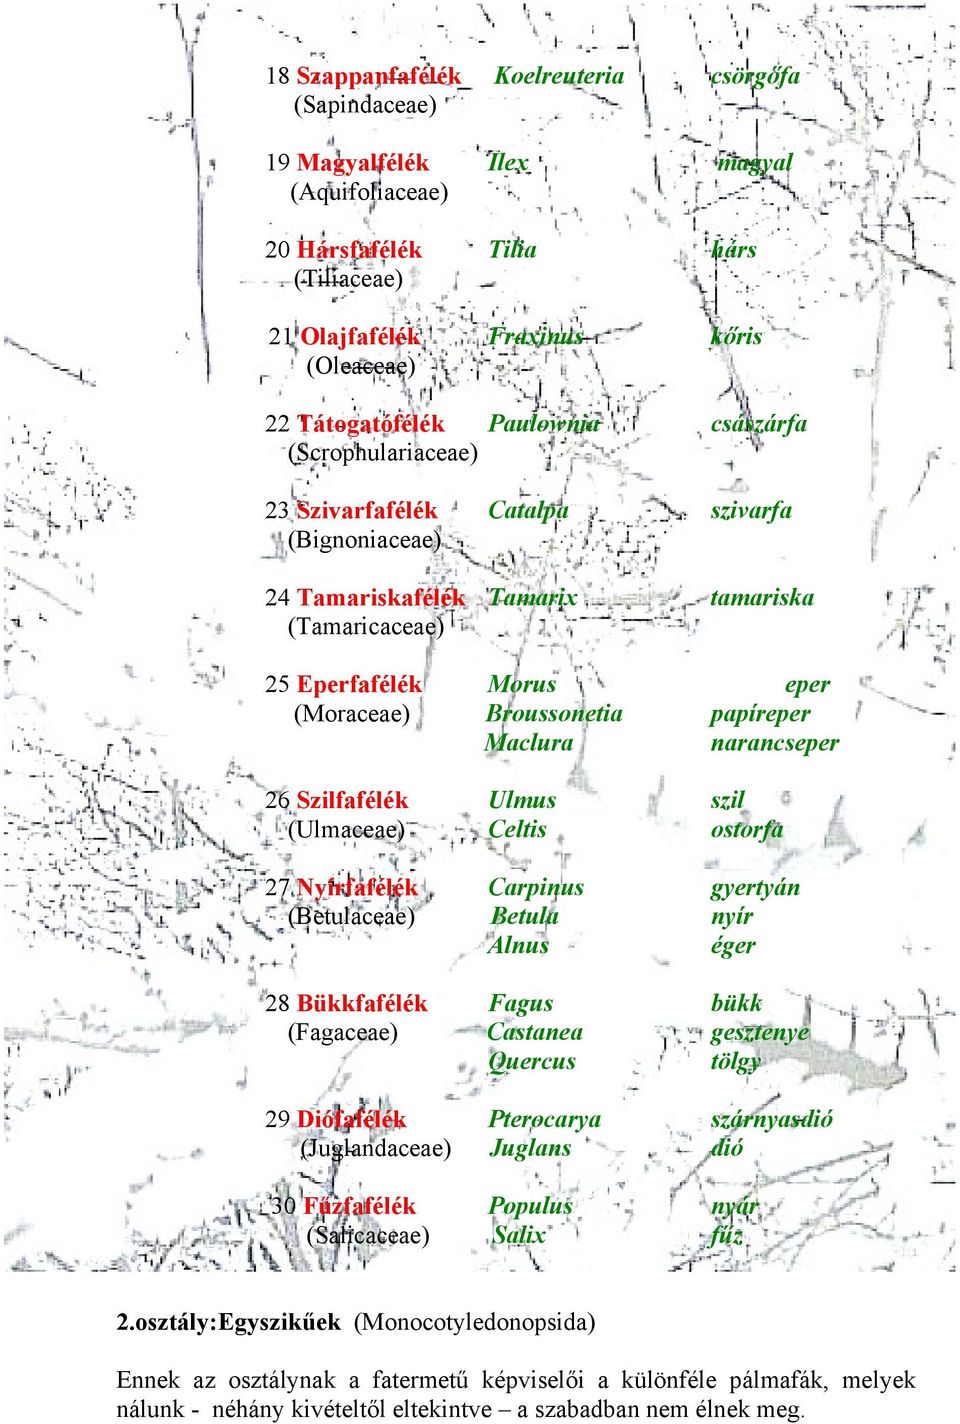 18 Szappanfafélék Koelreuteria csörgőfa
(Sapindaceae)
19 Magyalfélék Ilex magyal
(Aquifoliaceae)
20 Hársfafélék Tilia hárs
(Tiliaceae)
21 Olajfafélék Fraxinus kőris
(Oleaceae)
22 Tátogatófélék Paulownia császárfa
(Scrophulariaceae)
23 Szivarfafélék Catalpa szivarfa
(Bignoniaceae)
24 Tamariskafélék Tamarix tamariska
(Tamaricaceae)
25 Eperfafélék Morus eper
(Moraceae) Broussonetia papíreper
Maclura narancseper
26 Szilfafélék Ulmus szil
(Ulmaceae) Celtis ostorfa
27 Nyírfafélék Carpinus gyertyán
(Betulaceae) Betula nyír
Alnus éger
28 Bükkfafélék Fagus bükk
(Fagaceae) Castanea gesztenye
Quercus tölgy
29 Diófafélék Pterocarya szárnyasdió
(Juglandaceae) Juglans dió
30 Fűzfafélék Populus nyár
(Salicaceae) Salix fűz
2.osztály:Egyszikűek (Monocotyledonopsida)
Ennek az osztálynak a fatermetű képviselői a különféle pálmafák, melyek
nálunk - néhány kivételtől eltekintve – a szabadban nem élnek meg.